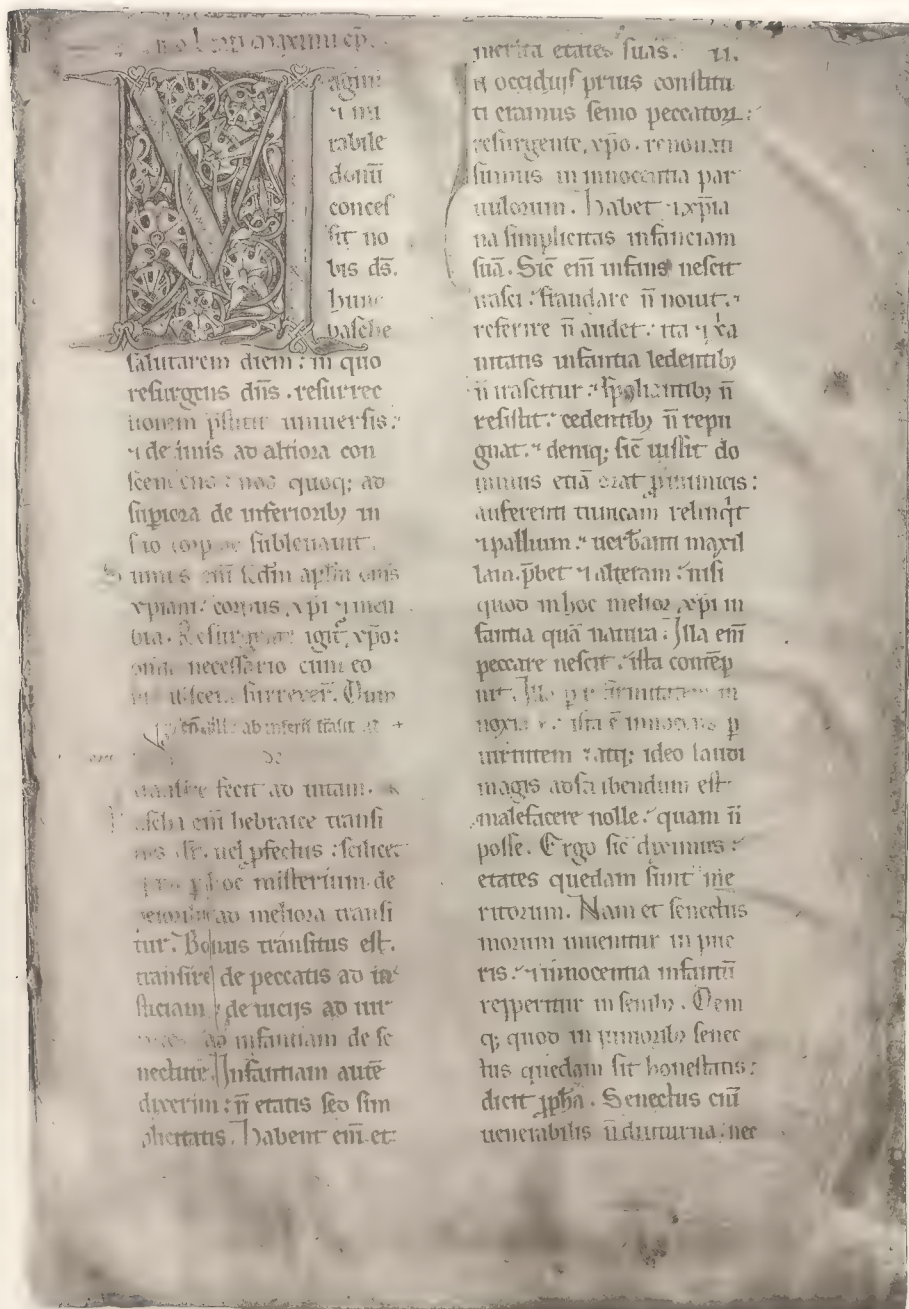 maximi ep̄.
M agnū
⁊ mi
rabile
donū
conceſ
ſit no
bis dſ̄.
hunc
paſche
ſalutarem diem : in quo
reſurgens dn̄s . reſurrec
tionem pſtitit uniuerſis :
⁊ de imis ad altiora con
nos quoq; ad
ſupiora de inferiorib; in
ſuo corpore ſubleuauit .
ſumus eni ſcdm apl̄m om̄s
xpiani : corpus xpi ⁊ mem
bra . Reſurgente igit̄ xpo :
omia neceſſario cum eo
ſurrexer̄ . Dum
eni ille ab inferis trāſit ad
de
tranſire fecit ad uitam .
Paſcha eni hebraice tranſi
tus dr̄ . uel pfectus : ſcilicet
p hoc miſterium de
deteriorib; ad meliora tranſi
tur . Bonus tranſitus eſt .
tranſire de peccatis ad iu
ſticiam de uicijs ad uir
ad infantiam de ſe
nectute . Infantiam autē
dixerim : n̄ etatis ſed ſim
plicitatis . Habent eni et
merita etates ſuas . II.
N occiduſ prius conſtitu
ti eramus ſenio peccatorꝝ :
reſurgente xpo . renouati
ſumus in innocentia par
uulorum . Habet ⁊ xp̄ia
na ſimplicitas infanciam
ſuā . Sic̄ eni infans neſcit
iraſci : fraudare n̄ nouit .
referire n̄ audet : ita ⁊ xa
nitatis infantia ledentib;
n̄ iraſcitur : ſpoliantib; n̄
reſiſtit : cedentib; n̄ repu
gnat . ⁊ deniq; ſic̄ iuſſit do
minus etiā orat p inimicis :
auferenti tunicam relinqͥt
⁊ pallium . uerberanti maxil
lam . p̄bet ⁊ alteram : niſi
quod in hoc melior xpi in
fantia quā natura : Illa eni
peccare neſcit . iſta contēp
nit . Illa p infirmitatem in
noxia ē . iſta ē innocens p
uirtutem : atq; ideo laudi
magis adſcribendum eſt
malefacere nolle : quam n̄
poſſe . Ergo ſic̄ diximus :
etates quedam ſunt me
ritorum . Nam et ſenectus
morum inuenitur in pue
ris : ⁊ innocentia infantū
reperitur in ſenib; . Dem
q; quod in iunioribꝰ ſenec
tus quedam ſit honeſtatis :
dicit ꝓph̄a . Senectus eni
uenerabilis n̄ diuturna : nec